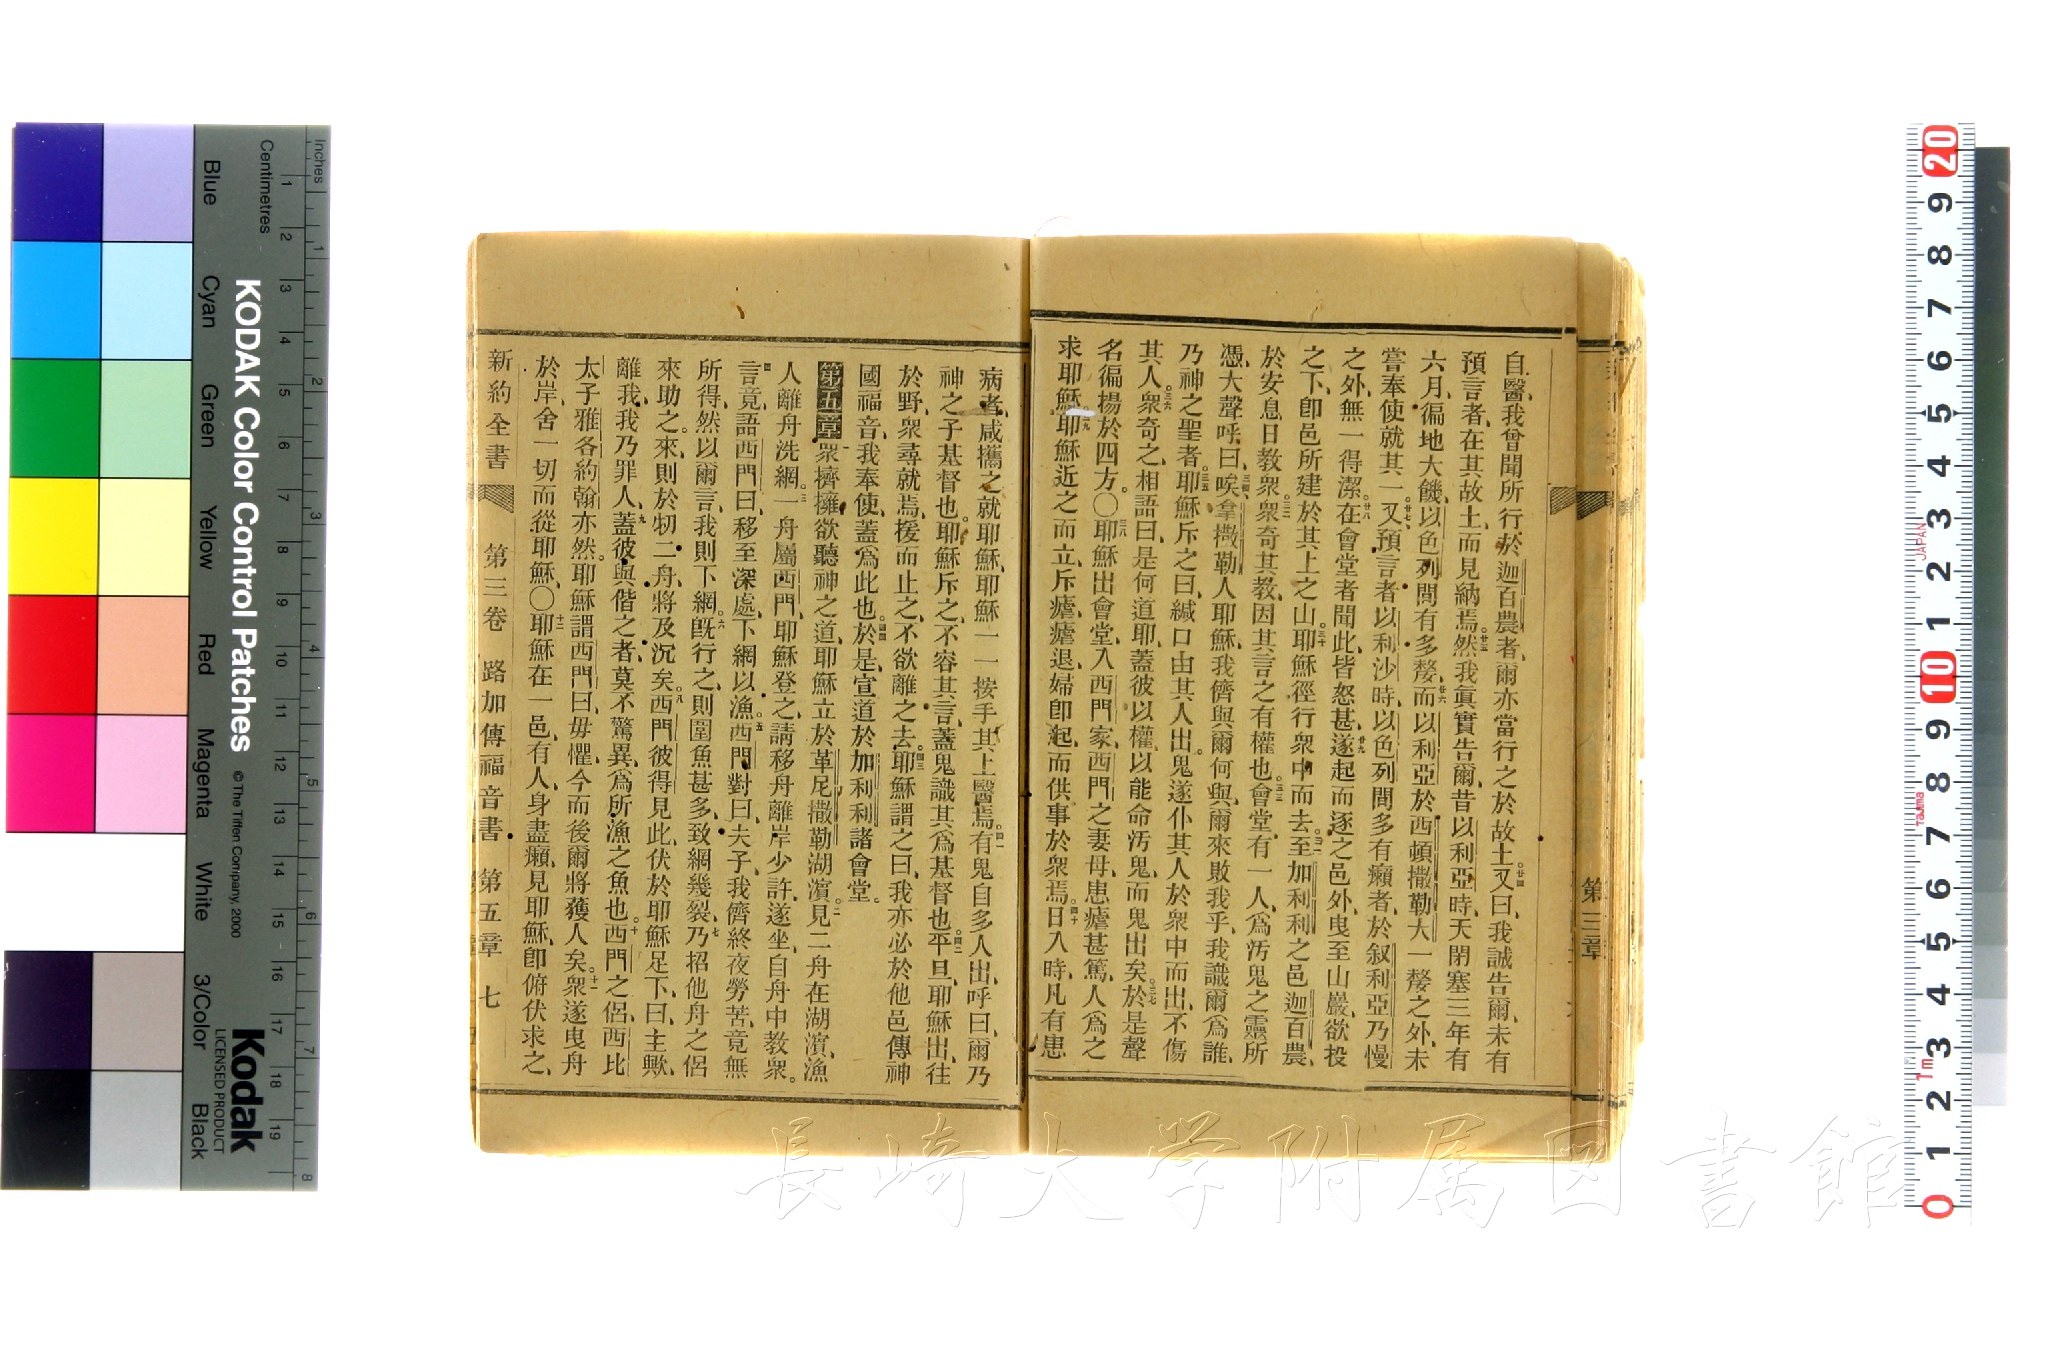 自醫、我曾聞所行於迦百農者、爾亦當行之於故土。廿四又曰、我誠告爾、未有
預言者、在其故土、而見納焉。廿五然我眞實告爾、昔以利亞時、天閉塞三年有
六月、徧地大饑、以色列間有多嫠、廿六而以利亞於西頓撒勒大一嫠之外、未
嘗奉使就其一。廿七又預言者以利沙時、以色列間多有癩者、於叙利亞乃慢
之外、無一得潔。廿八在會堂者聞此、皆怒甚、廿九遂起而逐之邑外、曳至山巖、欲投
之下、卽邑所建於其上之山、三十耶穌徑行衆中而去。三一至加利利之邑迦百農、
於安息日教衆。三二衆奇其教、因其言之有權也。三三會堂有一人、爲汚鬼之靈所
憑、大聲呼曰、三四唉、拿撒勒人耶穌、我儕與爾何與、爾來敗我乎、我識爾爲誰、
乃神之聖者。三五耶穌斥之曰、緘口、由其人出。鬼遂仆其人於衆中而出、不傷
其人。三六衆奇之、相語曰、是何道耶、蓋彼以權、以能命汚鬼、而鬼出矣。三七於是聲
名徧揚於四方。〇三八耶穌出會堂、入西門家、西門之妻母、患瘧甚篤、人爲之
求耶穌。三九耶穌近之而立、斥瘧、瘧退、婦卽起、而供事於衆焉。四十日入時、凡有患
第三章
病者、咸攜之就耶穌、耶穌一一按手其上醫焉。四一有鬼自多人出、呼曰、爾乃
神之子基督也。耶穌斥之、不容其言、蓋鬼識其爲基督也。四二平旦、耶穌出、往
於野、衆尋就焉、援而止之、不欲離之去。四三耶穌謂之曰、我亦必於他邑傳神
國福音、我奉使、蓋爲此也。四四於是宣道於加利利諸會堂。
第五章 一衆擠擁欲聽神之道、耶穌立於革尼撒勒湖濱、二見二舟在湖濱、漁
人離舟洗網。三一舟屬西門、耶穌登之、請移舟離岸少許、遂坐、自舟中教衆。
四言竟、語西門曰、移至深處、下網以漁。五西門對曰、夫子、我儕終夜勞苦、竟無
所得、然以爾言、我則下網。六旣行之、則圍魚甚多、致網幾裂、七乃招他舟之侶
來助之。來、則於牣二舟、將及沉矣。八西門彼得見此、伏於耶穌足下曰、主歟、
離我、我乃罪人、九蓋彼與偕之者、莫不驚異、爲所漁之魚也。十西門之侶、西比
太子雅各約翰亦然。耶穌謂西門曰、毋懼、今而後爾將獲人矣。十一衆遂曳舟
於岸、舍一切而從耶穌、〇十二耶穌在一邑、有人身盡癩、見耶穌、卽俯伏求之、
新約全書 第三卷 路加傳福音書 第五章 七
長崎大学附属図書館
Inches
Centimetres
KODAK Color Control Patches
© The Tiffen Company, 2000
Kodak
LICENSED PRODUCT
Blue Cyan Green Yellow Red Magenta White 3/Color Black
1 2 3 4 5 6 7 8 9 10 11 12 13 14 15 16 17 18 19
1 2 3 4 5 6 7 8
20 9 8 7 6 5 4 3 2 1 10 9 8 7 6 5 4 3 2 1 0
JAPAN
Tajima
1m